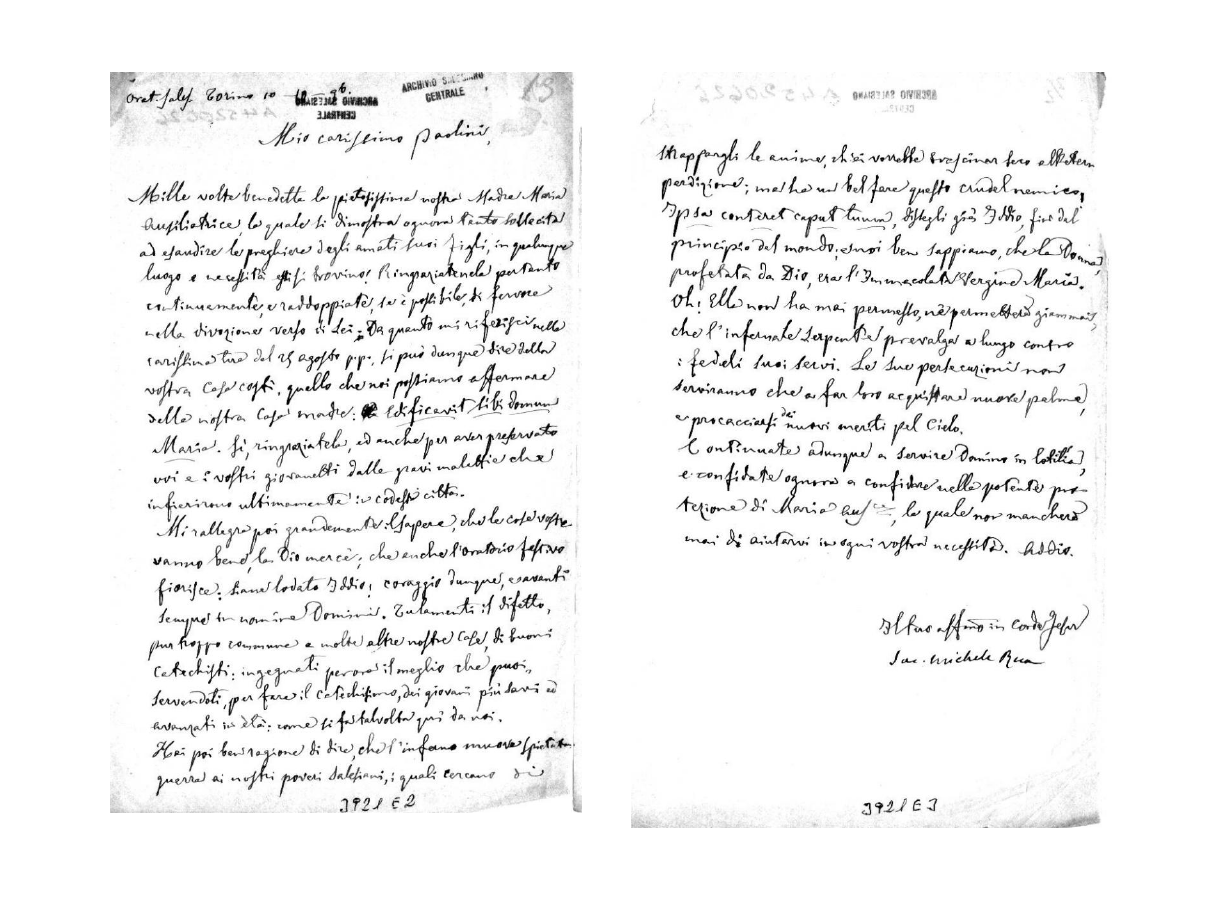 Orat. Sales. Torino 10
ARCHIVIO SALESIANO
CENTRALE
13
Mio carissimo Paolini,
Mille volte benedetta la pietosissima nostra Madre Maria
Ausiliatrice la quale si dimostra ognora tanto sollecita
ad esaudire le preghiere degli amati suoi figli, in qualunque
luogo e necessità si trovino! Ringraziatenela pertanto
continuamente, e raddoppiate, se è possibile, di fervore
nella divozione verso di Lei. Da quanto mi riferisci nella
carissima tua del 25 agosto p.p. si può dunque dire della
vostra Casa costì, quello che noi possiamo affermare
della nostra Casa madre: Edificavit sibi domum
Maria. Sì, ringraziatela, ed anche per aver preservato
voi e i vostri giovanetti dalle gravi malattie che
infierirono ultimamente in codesta città.
Mi rallegra poi grandemente il sapere, che le cose vostre
vanno bene, la Dio mercè; che anche l'oratorio festivo
fiorisce: siane lodato Iddio! coraggio dunque, e avanti
sempre in nomine Domini. Tu lamenti il difetto,
pur troppo commune a molte altre nostre Case, di buoni
catechisti: ingegnati perora il meglio che puoi,
servendoti, per fare il catechismo, dei giovani più savii ed
avanzati in età: come si fa talvolta qui da noi.
Hai poi ben ragione di dire, che l'inferno muove spietata
guerra ai nostri poveri Salesiani, i quali cercano di
3921 E 2
ARCHIVIO SALESIANO
strappargli le anime, ch'ei vorrebbe trascinar seco all'eterna
perdizione; ma ha un bel fare questo crudel nemico,
Ipsa conteret caput tuum, dissegli già Iddio, fin dal
principio del mondo; e noi ben sappiamo, che la Donna,
profetata da Dio, era l'Immacolata Vergine Maria.
Oh! Ella non ha mai permesso, nè permetterà giammai,
che l'infernale Serpente prevalga a lungo contro
i fedeli suoi servi. Le sue persecuzioni non
serviranno che a far loro acquistare nuove palme,
e procacciarsi dei nuovi meriti pel Cielo.
Continuate adunque a servire Domino in letitia,
e confidate ognora a confidare nella potente pro-
tezione di Maria Aus.ce, la quale non mancherà
mai di aiutarvi in ogni vostra necessità. Addio.
Il tuo aff.mo in Corde Jesu
Sac. Michele Rua
3921 E 3